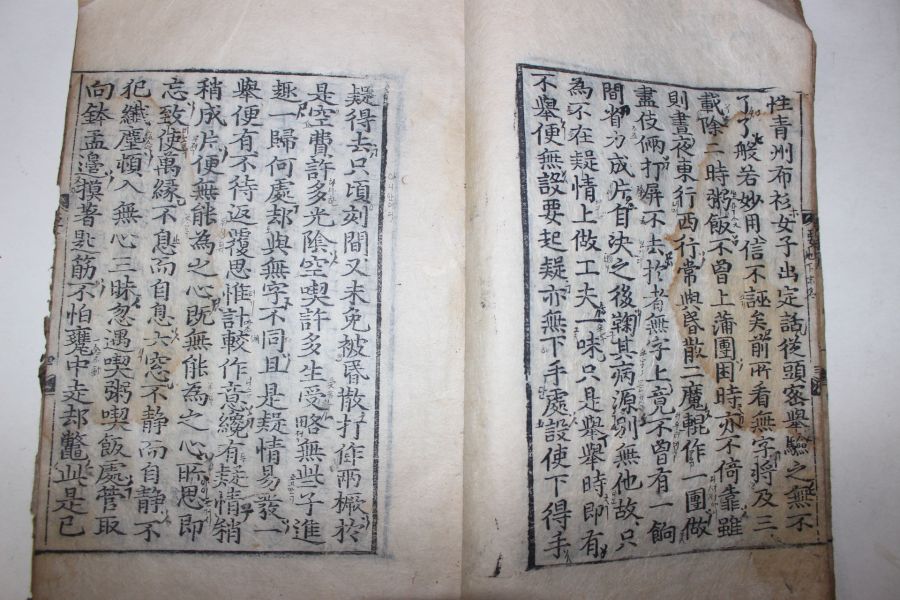 性青州布衫女子出定話從頭密舉驗之無不
了了般若妙用信不誣矣前所看無字將及三
載除二時粥飯不曾上蒲團困時亦不倚靠雖
則晝夜東行西行常與昏散二魔輥作一團做
盡伎倆打屏不去於者無字上竟不曾有一餉
間省力成片自決之後鞠其病源別無他故只
為不在疑情上做工夫一味只是舉舉時即有
不舉便無設要起疑亦無下手處設使下得手
疑得去只頃刻間又未免被昏散打作兩橛於
是空費許多光陰空喫許多生受略無些子進
趣一歸何處却與無字不同且是疑情易發一
舉便有不待返覆思惟計較作意纔有疑情稍
稍成片便無能為之心旣無能為之心所思即
忘致使萬緣不息而自息六窓不静而自静不
犯纖塵頓入無心三昧忽遇喫粥喫飯處管取
向鉢盂邊摸著匙筋不怕甕中走却鱉此是已